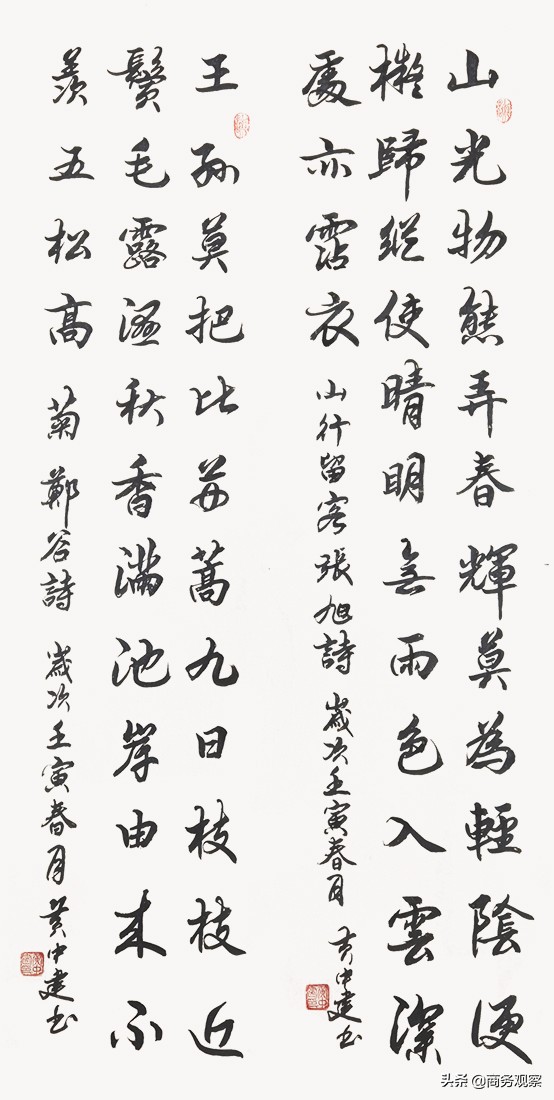 山光物態弄春輝莫為輕陰便
擬歸縱使晴明無雨色入雲深
處亦霑衣 山行留客張旭詩 歲次壬寅春月 黄中建书
王孫莫把比荊蒿九日枝枝近
鬢毛露濕秋香滿池岸由來不
羨五松高 菊 鄭谷詩 歲次壬寅春月 黄中建书
头条 @商务观察